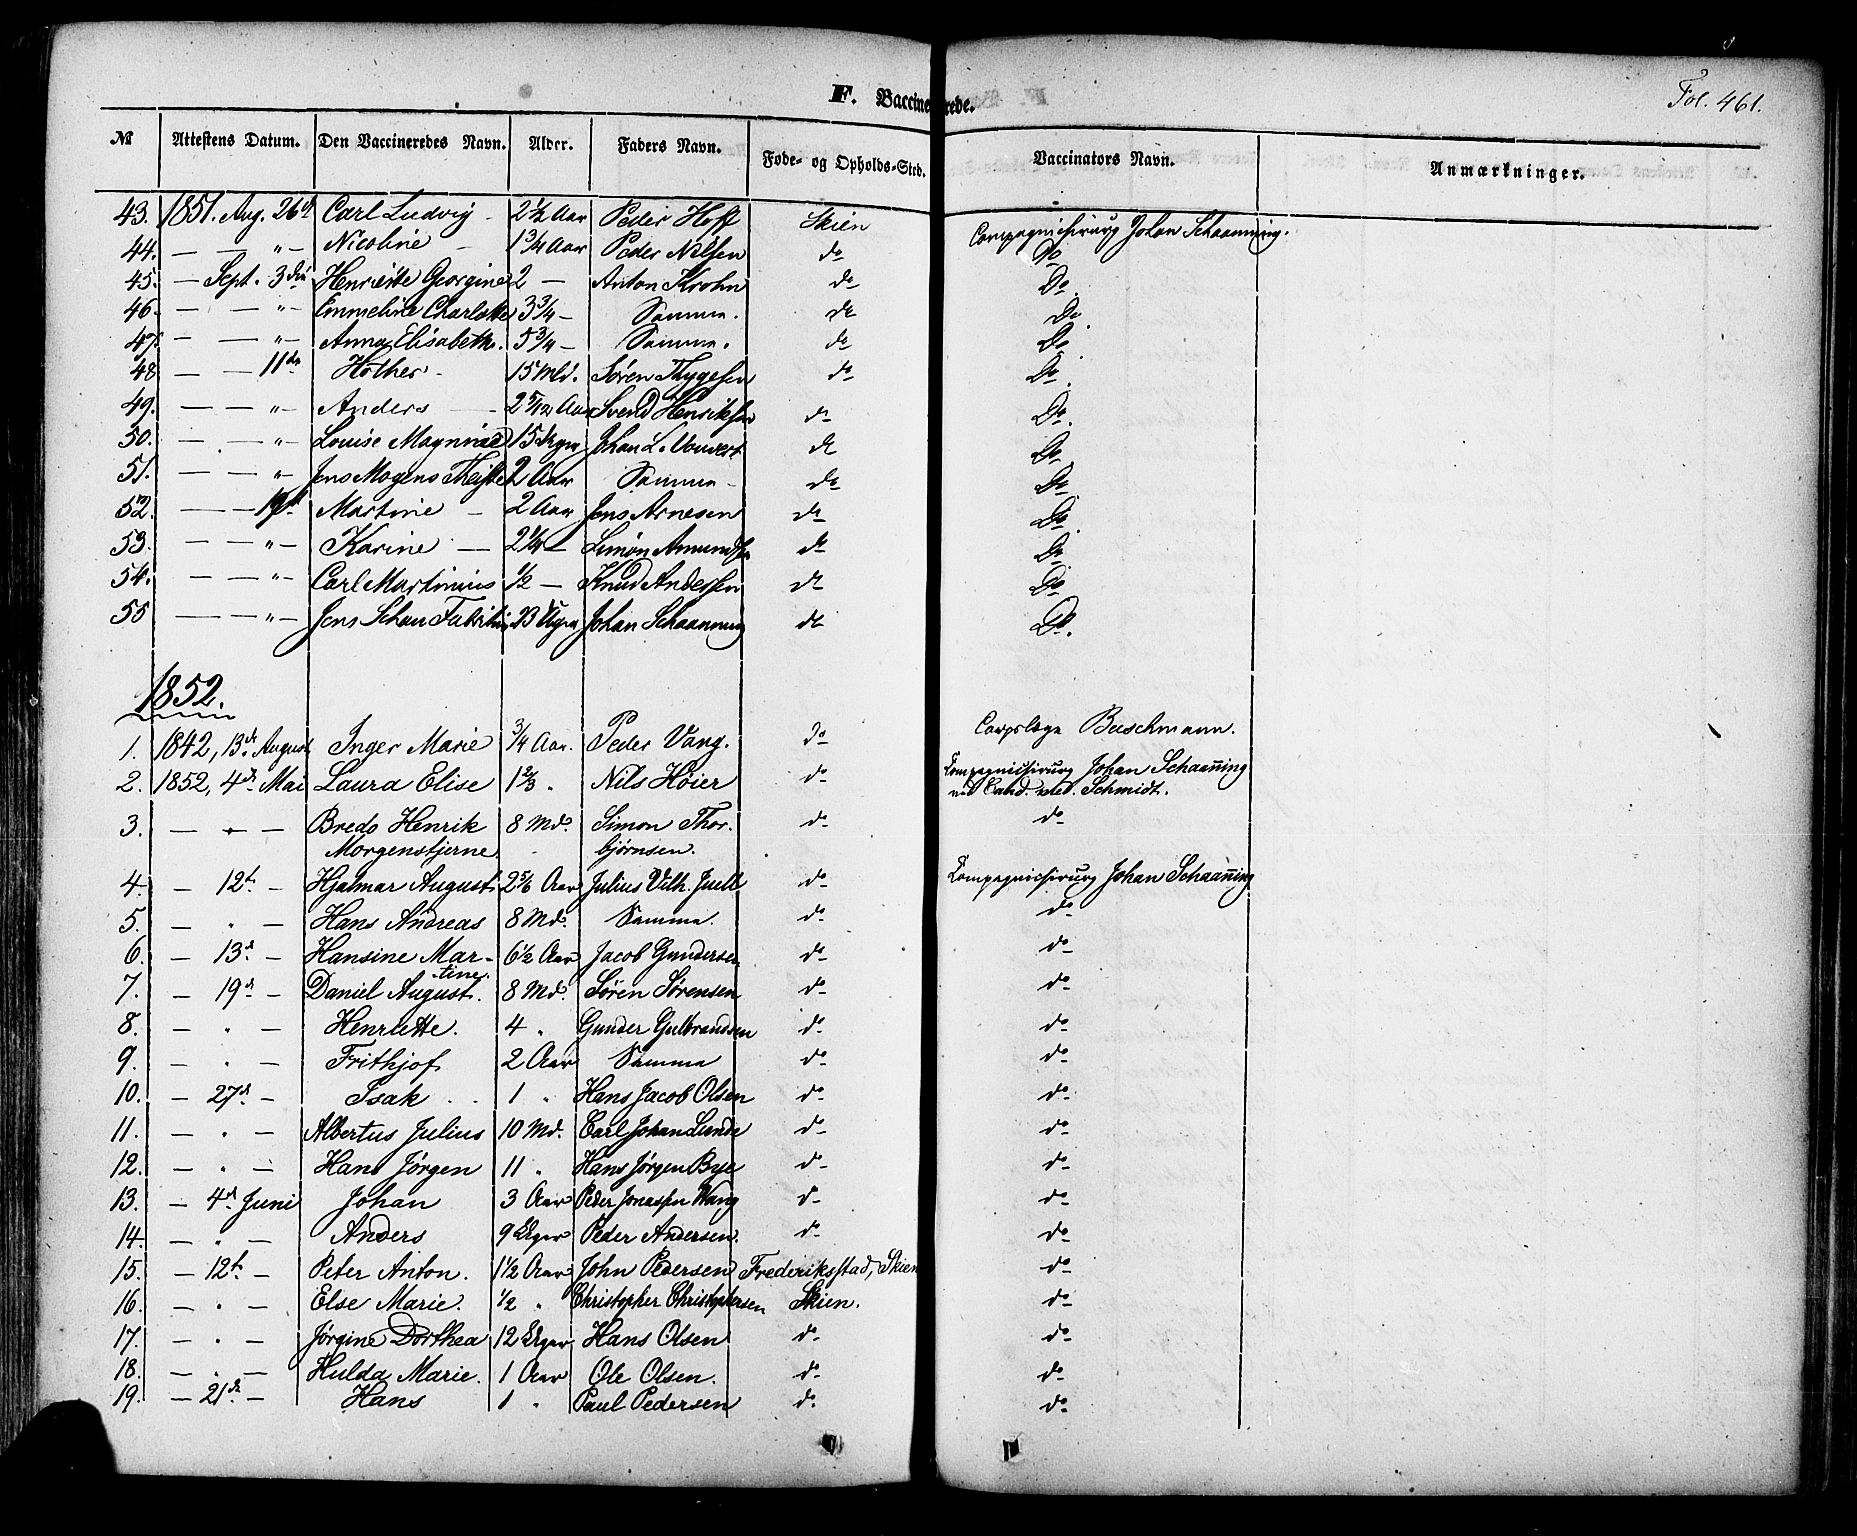 F. Vaccinerede.
Fol. 461.
№ Attestens Datum. Den Vaccineredes Navn. Alder. Faders Navn. Føde- og Opholds-Sted. Vaccinators Navn. Anmærkninger.
43. 1851. Aug. 26de Carl Ludvig - 2 1/2 Aar Peder Hoff Skien Compagnichirurg Johan Schaanning.
44. — — „ — Nicoline - 1 3/4 Aar Peder Nilsen do Do
45. — Sept. 3die Henriette Georgine 2 — Anton Krohn do Do.
46. — — „ — Emmeline Charlotte 3 3/4 — Samme. do Do
47. — — „ — Anna Elisabeth. 5 3/4 — Samme. do Do
48 — — 11te Hother - 15 Md. Søren Thygesen do Do.
49. — — „ — Anders — 2 5/12 Aar Svend Henriksen do Do.
50. — — „ — Louise Magnine 15 Uger Johan L. do Do
51. — — „ — Jens Mogens 2 Aar Samme - do Do
52. — — Martine - 2 Aar Jens Arnesen do Do
53. — — „ — Karine — 2 1/4 — Simon Amundsen do Do
54. — — „ — Carl Martinius 1/2 — Knud Andersen do Do
55 — — „ — Jens Schou 23 Uger Johan Schaanning do Do.
1852.
1. 1842, 13de August Inger Marie 3/4 Aar. Peder Vang. do Corpslæge Buschmann.
2. 1852, 4de Mai Laura Elise 1 2/3 „ Nils Høier do Kompagnichirurg Johan Schaanning
ved Cand. med. Schmidt.
3. — „ — Bredo Henrik 8 Md. Simon Thor- do do
Morgenstjerne. bjørnsen.
4. — 12te — Hjalmar August 2 5/6 Aar Julius Vilh. Juell do Kompagnichirurg Johan Schaanning
5. — „ — Hans Andreas 8 Md. Samme. do do
6. — 13de — Hansine Mar- 6 1/2 Aar Jacob Gundersen do do
tine.
7. — 19de — Daniel August. 8 Md. Søren Sørensen do do
8. — „ — Henriette. 4 „ Gunder Gulbrandsen do do
9. — „ — Frithjof 2 Aar Samme do do
10. — 27de — Isak . . 1 „ Hans Jacob Olsen do do
11. — „ — Albertus Julius 10 Md. Carl Johan Lunde do do
12. — „ — Hans Jørgen 11 „ Hans Jørgen Bye do do
13. — 4de Juni Johan 3 Aar Peder Jonassen Wang do do
14. — „ — Anders 9 Uger Peder Andersen. do do
15. — 12te — Peter Anton. 1 1/2 Aar John Pedersen Frederiksstad, Skien do
16. — „ — Else Marie. 1/2 „ Christopher Christophersen Skien. do
17. — „ — Jørgine Dorthea 12 Uger Hans Olsen do do
18. — „ — Hulda Marie. 1 Aar Ole Olsen. do do
19. — 21de — Hans 1 „ Paul Pedersen do do